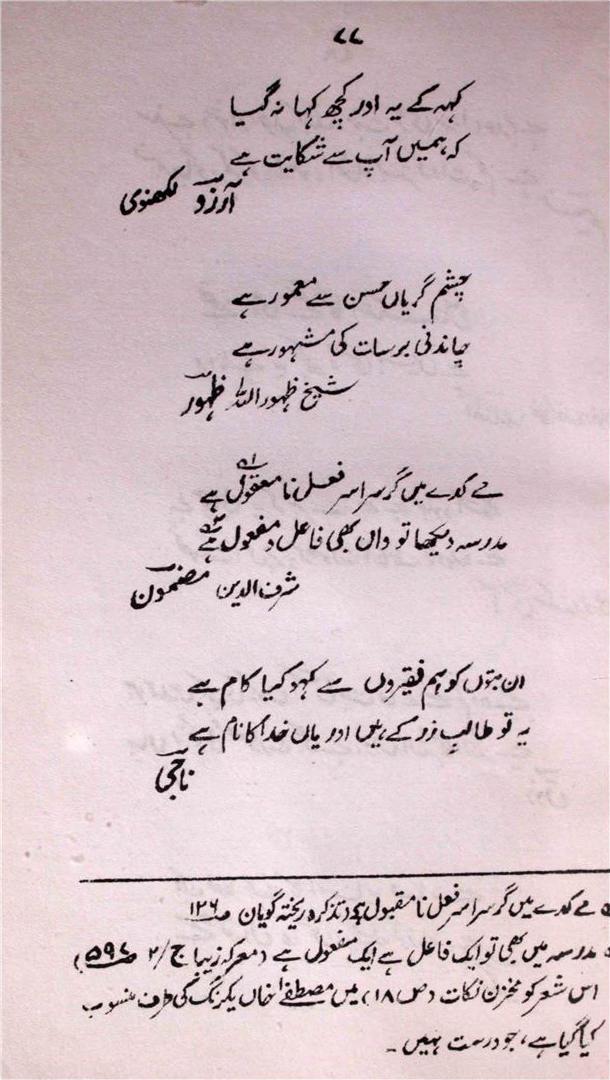 ۷۷
کہہ کے یہ اور کچھ کہا نہ گیا
کہ ہمیں آپ سے شکایت ہے
آرزو لکھنوی
چشم گریاں حسن سے معمور ہے
چاندنی برسات کی مشہور ہے
شیخ ظہور اللہ ظہور
مے کدے میں گر سراسر فعل نامعقول ہے
مدرسہ دیکھا تو واں بھی فاعل و مفعول ہے
شرف الدین مضمون
ان بتوں کو ہم فقیروں سے کہو کیا کام ہے
یہ تو طالب زر کے ہیں اور یاں خدا کا نام ہے
ناجی
مے کدے میں گر سراسر فعل نامقبول ہے (تذکرہ ریختہ گویان ص ۱۲۶
مدرسہ میں بھی تو ایک فاعل ہے ایک مفعول ہے (معرکہ زیبا ج/۲ ص ۵۹۷)
اس شعر کو مخزن نکات (ص ۱۸) میں مصطفےٰ خاں یکرنگ کی طرف منسوب
کیا گیا ہے، جو درست نہیں۔